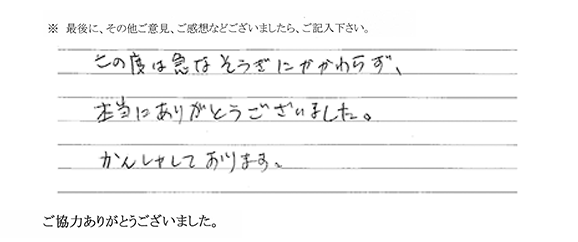 ※ 最後に、その他ご意見、ご感想などございましたら、ご記入下さい。
この度は急なそうぎにかかわらず、
本当にありがとうございました。
かんしゃしております。
ご協力ありがとうございました。